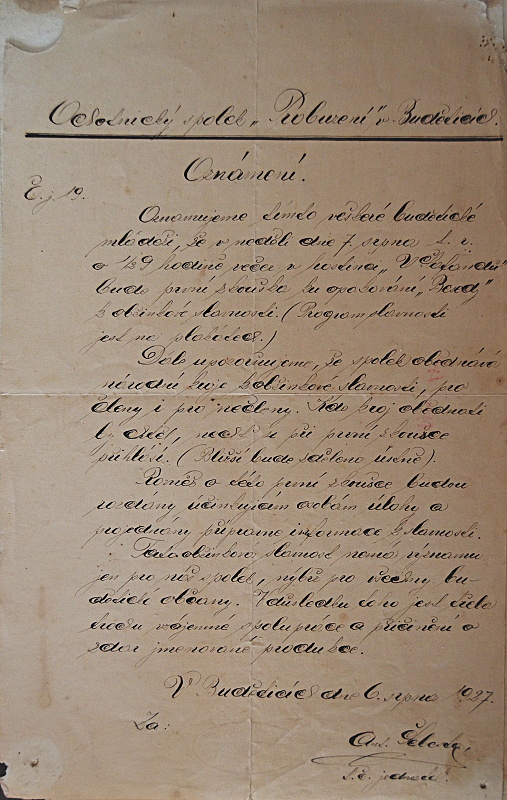 Ochotnický spolek „Probuzení" v Buděticích.
Oznámení.
Č. j. 19.
Oznamujeme tímto veškeré budětické
mládeži, že v neděli dne 7. srpna t. r.
o ½9 hodině večer v hostinci „V
bude první zkouška ku opakování „Besedy"
k dožínkové slavnosti. (Program slavnosti
jest na plakátech.)
Dále upozorňujeme, že spolek objednává
národní kroje k dožínkové slavnosti, pro
členy i pro nečleny. Kdo kroj objednati
by chtěl, nechť se při první zkoušce
přihlásí. (Bližší bude sděleno ústně)
Rovněž o této první zkoušce budou
rozdány účinkujícím osobám úlohy a
projednány přípravné informace k slavnosti.
Tato dožínková slavnost nemá významu
jen pro náš spolek, nýbrž pro všechny bu-
dětické občany. V důsledku čehož jest třeba
trochu vzájemné spolupráce a přičinění o
zdar jmenované produkce.
V Buděticích dne 6. srpna 1927.
Za:
Ant.
t. č. jednatel.